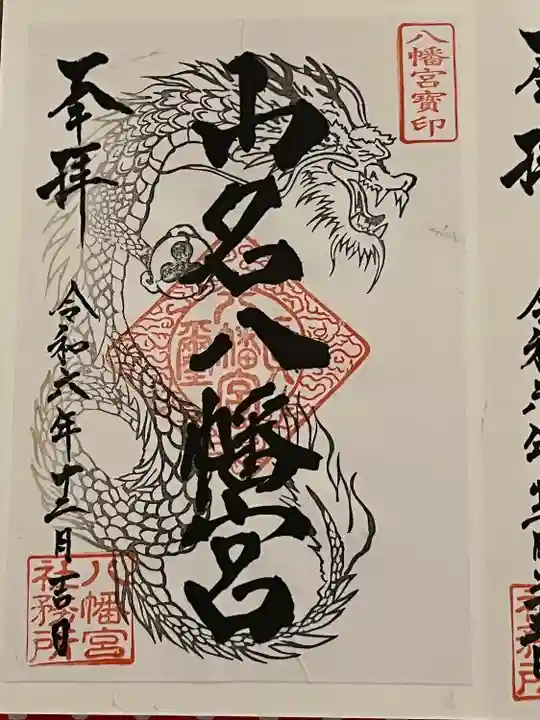 八幡宮寶印
山名八幡宮
奉拝
令和六年十二月吉日
八幡宮
社務所